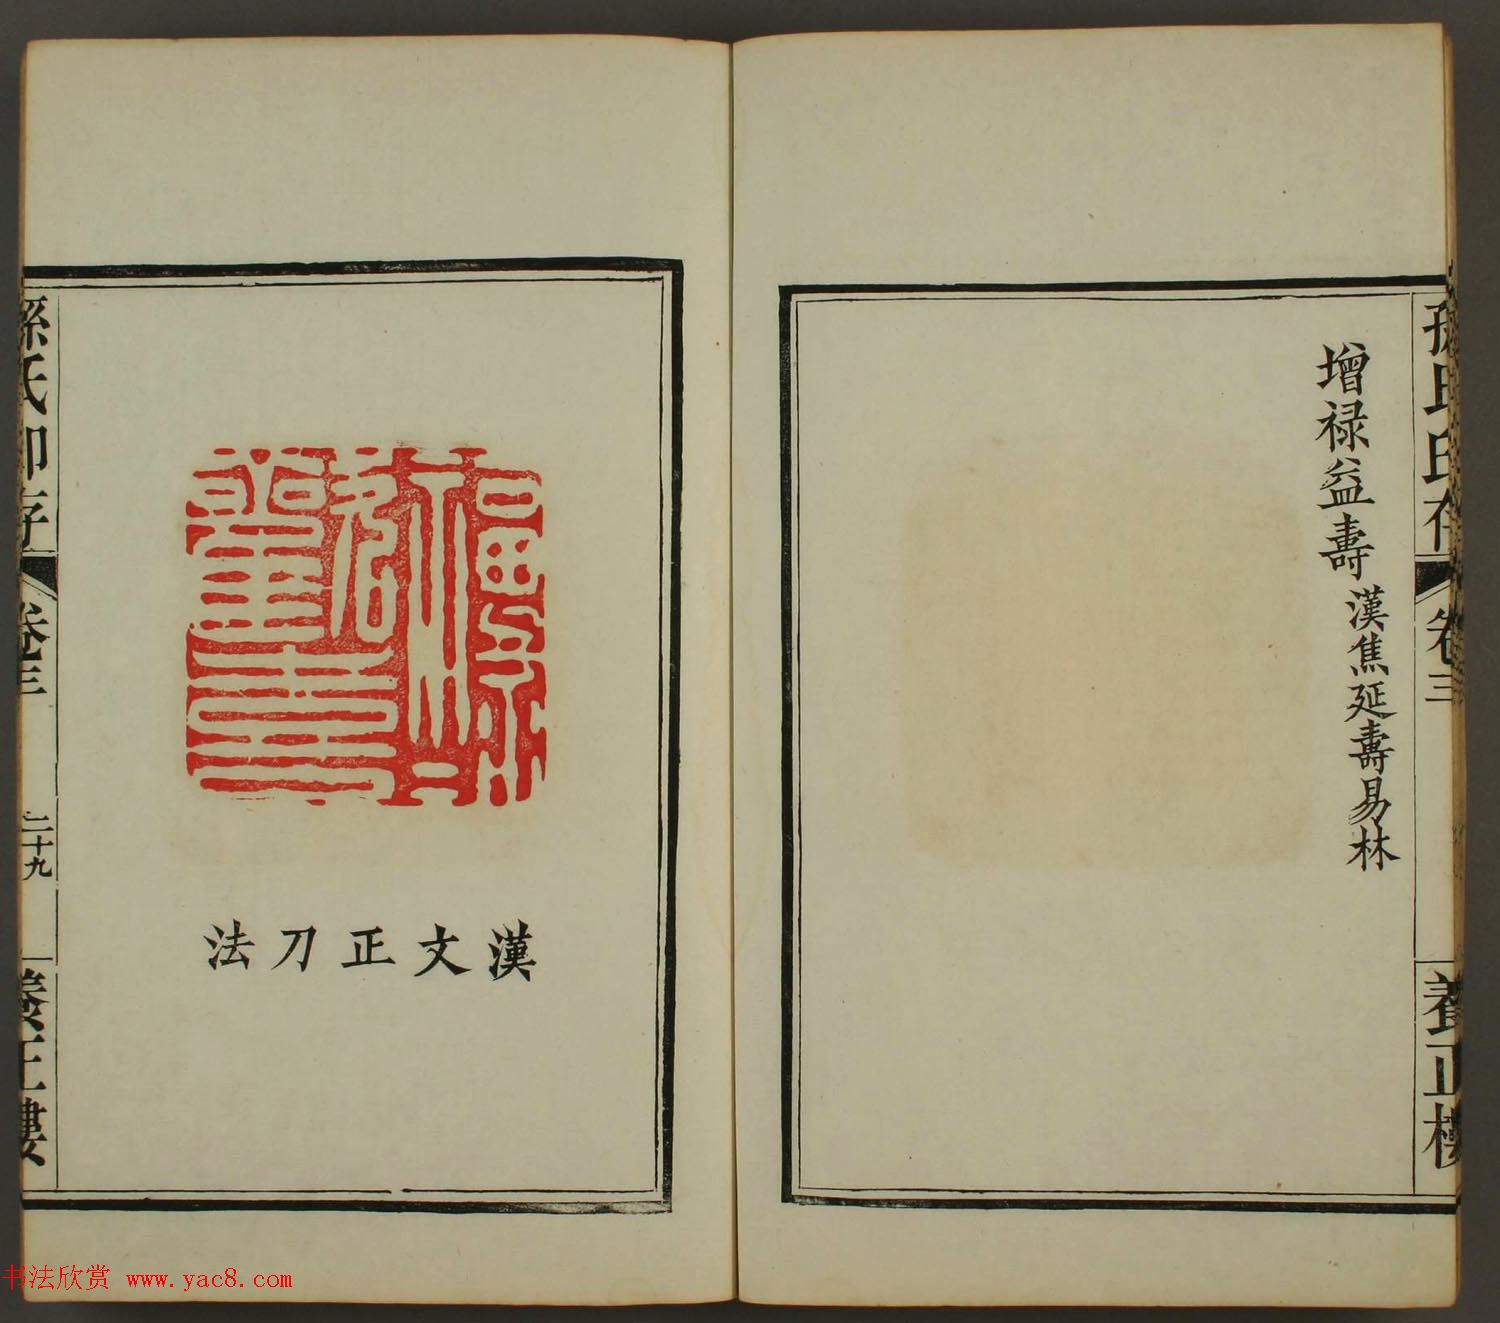 孫氏印存
卷三
養正樓
增禄益壽 漢焦延壽易林
漢文正刀法
孫氏印存
卷三
二十九
養正樓
书法欣赏 www.yac8.com